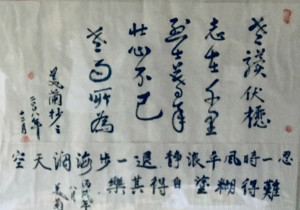 老驥伏櫪
志在千里
烈士暮年
壯心不已
二〇一八年
十二月
忍一時風平浪靜退一步海闊天空
難得糊塗自得其樂
八月